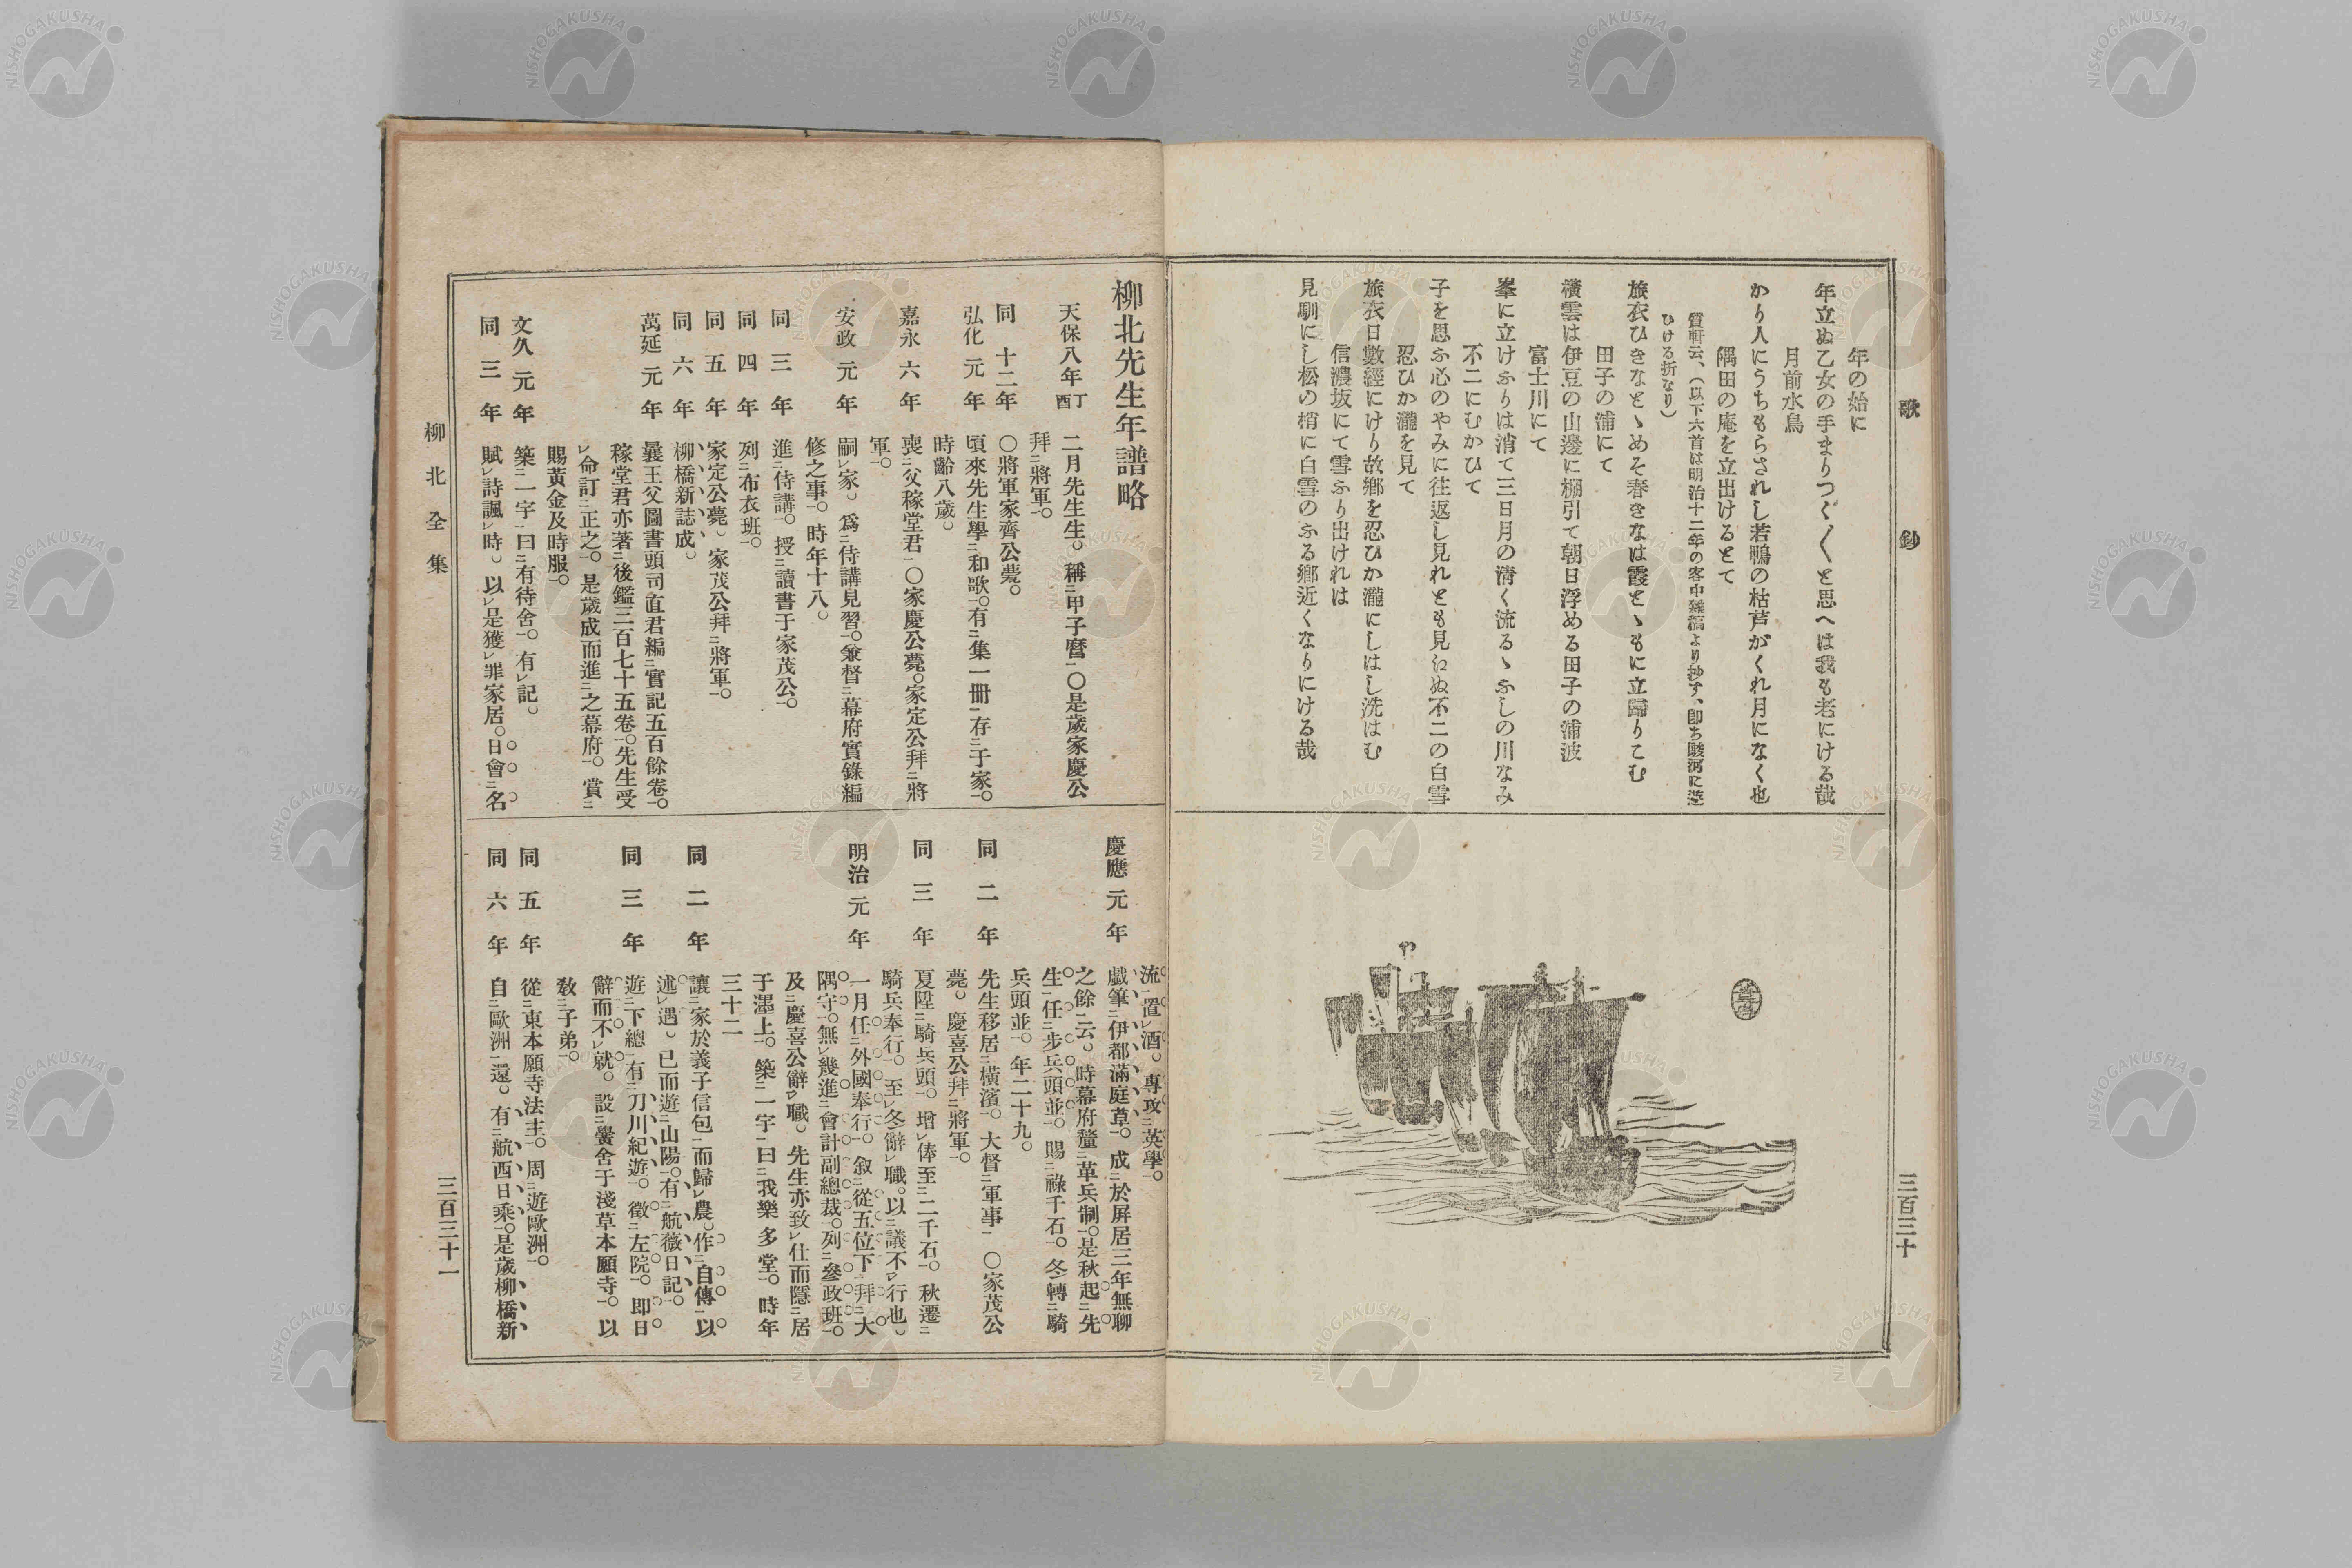 歌鈔
三百三十
年の始に
年立ぬ乙女の手まりつく〱と思へは我も老にける哉
月前水鳥
かり人にうちもらされし若鴨の枯芦がくれ月になく也
隅田の庵を立出けるとて
質軒云、(以下六首は明治十二年の客中雜稿より抄す、卽ち駿河に遊
ひける折なり)
旅衣ひきなとゝめそ春きなは霞とゝもに立歸りこむ
田子の浦にて
橫雲は伊豆の山邊に棚引て朝日浮める田子の浦波
富士川にて
峯に立けふりは消て三日月の淸く流るゝふしの川なみ
不二にむかひて
子を思ふ心のやみに往返し見れとも見えぬ不二の白雪
忍ひか瀧を見て
旅衣日數經にけり故鄕を忍ひか瀧にしはし洗はむ
信濃坂にて雪ふり出けれは
見馴にし松の梢に白雪のふる鄕近くなりにける哉
柳北先生年譜略
天保八年丁酉 二月先生生。稱二甲子麿一〇是歲家慶公
拜二將軍一。
同十二年 〇將軍家齊公薨。
弘化元年 頃來先生學二和歌一。有二集一冊一存二于家一。
時齡八歲。
嘉永六年 喪二父稼堂君一〇家慶公薨。家定公拜二將
軍一。
安政元年 嗣レ家。爲二侍講見習一。兼督二幕府實錄編
修之事一。時年十八。
同三年 進二侍講一。授二讀書于家茂公一。
同四年 列二布衣班一。
同五年 家定公薨。家茂公拜二將軍一。
同六年 柳橋新誌成。
萬延元年 曩王父圖書頭司直君編二實記五百餘卷一。
稼堂君亦著二後鑑三百七十五卷一。先生受
レ命訂二正之一。是歲成而進二之幕府一。賞二
賜黃金及時服一。
文久元年 築二一宇一曰二有待舍一。有レ記。
同三年 賦レ詩諷レ時。以レ是獲レ罪家居。日會二名
流一置レ酒。專攻二英學一。
戯筆二伊都滿庭草一。成二於屛居三年無聊
之餘一云。時幕府釐二革兵制一。是秋起二先
慶應元年 生一任二步兵頭並一。賜二祿千石一。冬轉二騎
兵頭並一。年二十九。
同二年 先生移二居橫濱一。大督二軍事一 〇家茂公
薨。慶喜公拜二將軍一。
同三年 夏陞二騎兵頭一。增レ俸至二二千石一。秋遷二
騎兵奉行一。至レ冬辭レ職。以二議不一レ行也。
明治元年 一月任二外國奉行一。敍二從五位下一拜二大
隅守一。無レ幾進二會計副總裁一。列二參政班一。
及二慶喜公辭一レ職。先生亦致レ仕而隱二居
于墨上一。築二一宇一曰二我樂多堂一。時年
三十二
同二年 讓二家於義子信包一而歸レ農。作二自傳一以
述レ遇。已而遊二山陽一。有二航薇日記一。
同三年 遊二下總一有二刀川紀遊一。徵二左院一。卽日
辭而不レ就。設二黌舍于淺草本願寺一。以
敎二子弟一。
同五年 從二東本願寺法主一。周二遊歐洲一。
同六年 自二歐洲一還。有二航西日乘一。是歲柳橋新
柳北全集
三百三十一